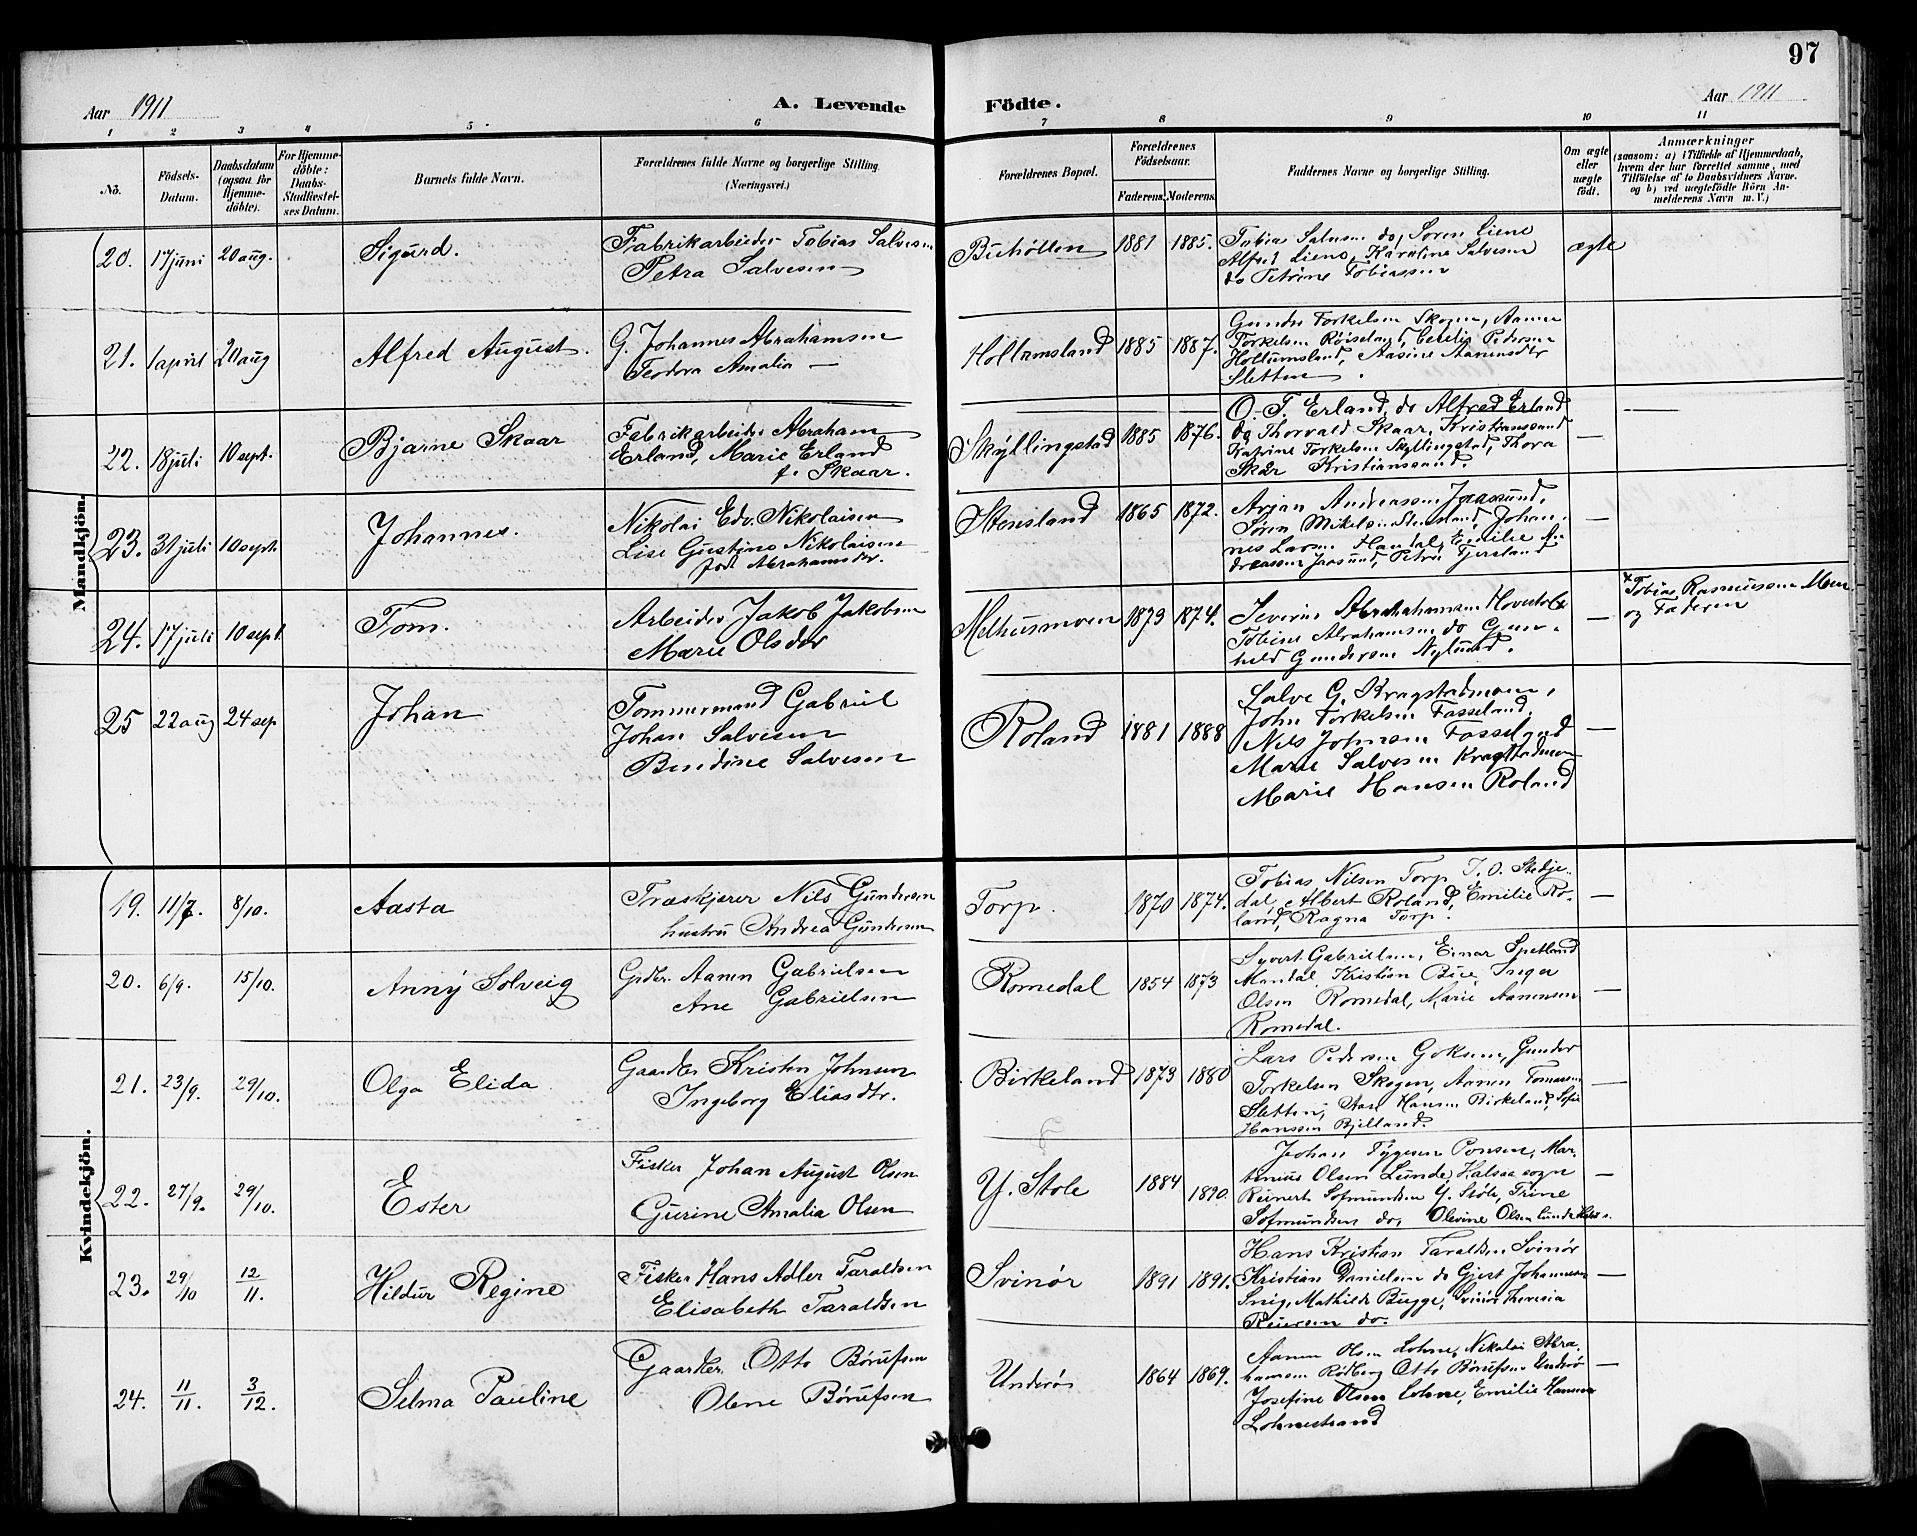 97
Aar 1911
A. Levende
Födte.
Aar 1911
1 2 3 4 5 6 7 8 9 10 11
No.
Födsels-Datum.
Daabsdatum (ogsaa for Hjemme-döbte).
For Hjemme-döbte: Daabs-Stadfæstel-ses Datum.
Barnets fulde Navn.
Forældrenes fulde Navne og borgerlige Stilling.
(Næringsvei.)
Forældrenes Bopæl.
Forældrenes Födselsaar.
Faderens. Moderens.
Faddernes Navne og borgerlige Stilling.
Om ægte eller uægte födt.
Anmærkninger
(saasom: a) i Tilfælde af Hjemmedaab,
hvem der har forrettet samme, med
Tilföielse af to Daabsvidners Navne.
og b) ved uægtefödte Börn An-
melderens Navn m. V.)
Mandkjön.
20. 17 juni 20 aug. Sigurd. Fabrikarbeider Tobias Salvesen
Petra Salvesen
Buholten 1881 1885.
Tobias Salvesen do, Søren Liene
Alfred Liene, Karoline Salvesen
do Petrine Tobiassen
ægte
21. 1 april 20 aug Alfred August. G. Johannes Abrahamsen
Teodora Amalia —
Hollumsland 1885 1887.
Gunder Torkelsen Skogen, Aanen
Torkelsen Røiseland, Cecilie Pedersen
Hollumsland, Aasine Aanensdtr
Sletten.
22. 18 juli 10 sept. Bjarne Skaar Fabrikarbeider Abraham
Erland, Marie Erland
f. Skaar.
Skyllingstad 1885 1876.
O. T. Erland, do Alfred Erland
do Thorvald Skaar, Kristianssand
Katrine Torkelsen Skyllingstad, Thora
Skår Kristianssand.
—
23. 31 juli 10 sept. Johannes. Nikolai Edv. Nikolaisen
Lise Gustine Nikolaisen
født Abrahamsdtr.
Stensland 1865 1872.
Arjan Andreassen Jaasund,
Søren Mikelsen Stensland, Johan-
nes Larsen Mandal, Emilie An-
dreassen Jaasund, Petra Fjersland
—
24. 17 juli 10 sept Tom. Arbeider Jakob Jakobsen
Marie Olsdtr
Melhusmoen 1879 1874.
Severin Abrahamsen Hovehold
Tobine Abrahamsen do Gun-
hild Gundersen Nylund.
—
x Tobias Rasmussen Moen
og Faderen
25 22 aug 24 sep Johan Tømmermand Gabriel
Johan Salvesen
Bendine Salvesen
Roland 1881 1888
Salve G. Kragstadmoen,
John Torkelsen Fasseland,
Nils Johnsen Fasseland
Marie Salvesen Kragstadmoen
Marie Hansen Roland
—
Kvindekjön.
19. 11/7. 8/10. Aasta Træskjærer Nils Gundersen
hustru Andrea Gundersen
Torp. 1870 1874.
Tobias Nilsen Torp, T. O. Stedje-
dal, Albert Roland, Emilie Ro-
land, Ragna Torp.
—
20. 6/9. 15/10. Anny Solveig Grdbr. Aanen Gabrielsen
Ane Gabrielsen
Romedal 1854 1873
Syvert Gabrielsen, Einar Spetland
Mandal Kristian Bue Inga
Olsen Romedal, Marie Aanensen
Romedal.
—
21. 23/9. 29/10. Olga Elida Gaardbr Kristen Johnsen
Ingeborg Eliasdtr.
Birkeland 1873 1880
Lars Pedersen Goksem, Gunder
Torkelsen Skogen, Aanen Tomassen
Sletten, Aase Hansen Birkeland, Sofie
Hanssen Bjelland.
—
22. 27/9. 29/10. Ester Fisker Johan August Olsen
Gurine Amalia Olsen
Y. Støle 1884 1890.
Johan Tygesen Ponsen, Mar-
tinius Olsen Lunde, Halsaa sogn
Reinert Sofmundsen Y. Støle, Trine
Sofmundsen do, Olevine Olsen Lunde Halsaa s.
—
23. 29/10 12/11. Hildur Regine Fisker Hans Adler Taraldsen
Elisabeth Taraldsen
Svinør 1891 1891.
Hans Kristian Taraldsen Svinør
Kristian Danielsen do Gjert Johannesen
Snig, Mathilde Bugge, Svinør Theresia
Reiersen do.
—
24. 11/11. 3/12. Selma Pauline Gaardbr. Otto Børufsen
Olene Børufsen
Underø 1864 1869.
Aanen Olsen Lohne, Nikolai Abra-
hamsen Rødberg Otto Børufsen Underø
Josefine Olsen Lohne, Emilie Hansen
Lohnestrand
—